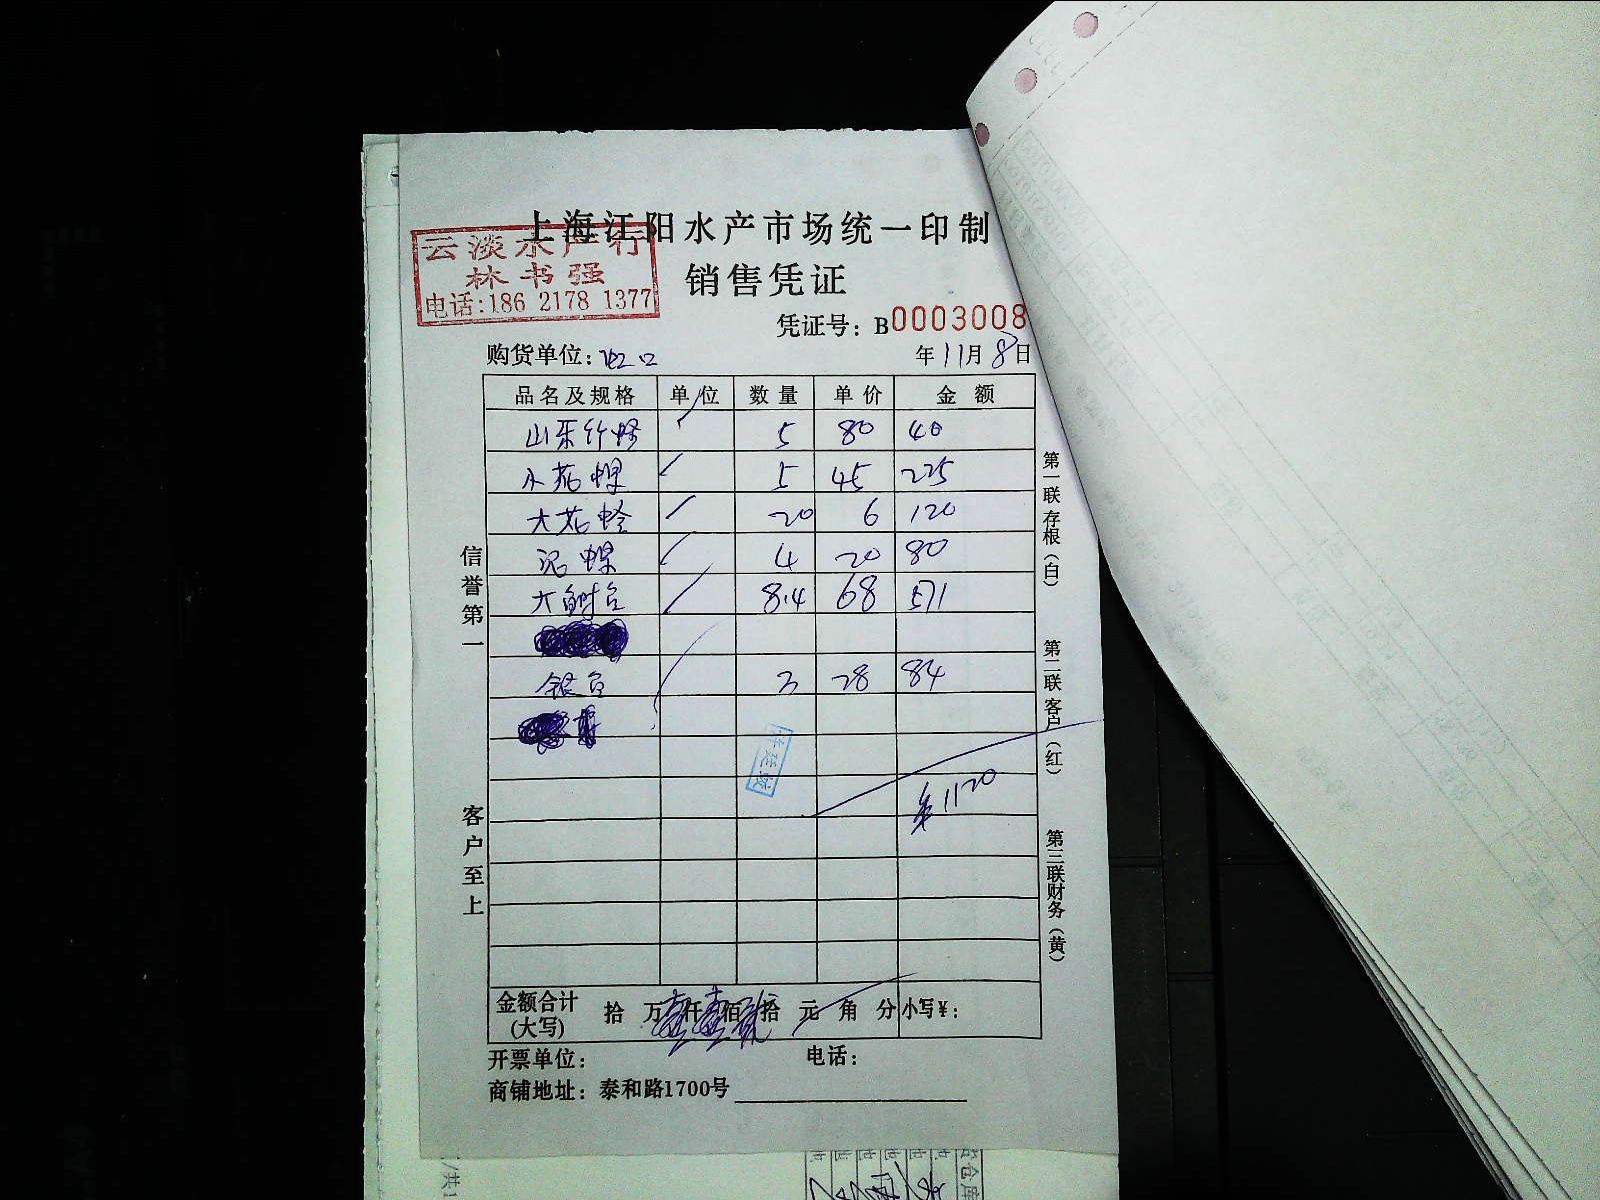 上海江阳水产市场统一印制
云淡水产行
林书强
电话:186 2178 1377
销售凭证
凭证号: B0003008
购货单位: 虹口
年11月8日
品名及规格 单位 数量 单价 金额
山东竹蛏 5 80 40
小花螺 5 45 225
大花蛤 20 6 120
泥螺 4 20 80
大鲥鱼 8.4 68 571
银鱼 3 28 84
¥1120
金额合计(大写) 拾万壹仟壹佰贰拾元角分 小写¥:
开票单位: 电话:
商铺地址: 泰和路1700号
信誉第一
客户至上
第一联存根(白)
第二联客户(红)
第三联财务(黄)